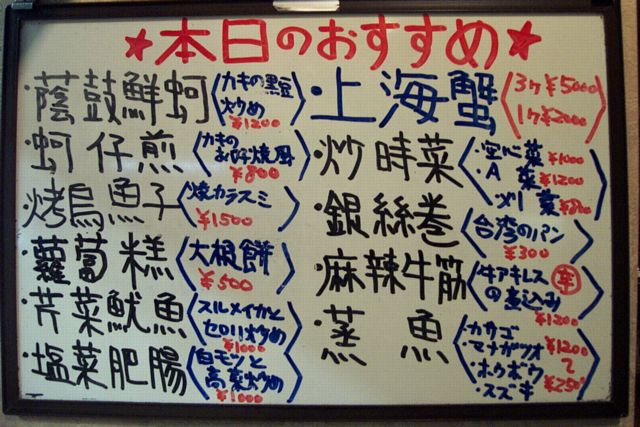 ★本日のおすすめ★
・蔭鼓鮮蚵
カキの黒豆
炒め
¥1200
・蚵仔煎
カキの
お好焼風
¥800
・烤烏魚子
焼カラスミ
¥1500
・蘿蔔糕
大根餅
¥500
・芹菜魷魚
スルメイカと
セロリ炒め
¥1000
・塩菜肥腸
白モツと
高菜炒め
¥1000
・上海蟹
3ヶ¥5000
1ヶ¥2000
・炒時菜
・空心菜 ¥1000
・A菜 ¥1200
菜 ¥800
・銀絲巻
台湾のパン
¥300
・麻辣牛筋
牛アキレス
の煮込み
¥1200
・蒸魚
・カサゴ
・マナガツオ
・ホウボウ
・スズキ
¥1200
〜
¥250